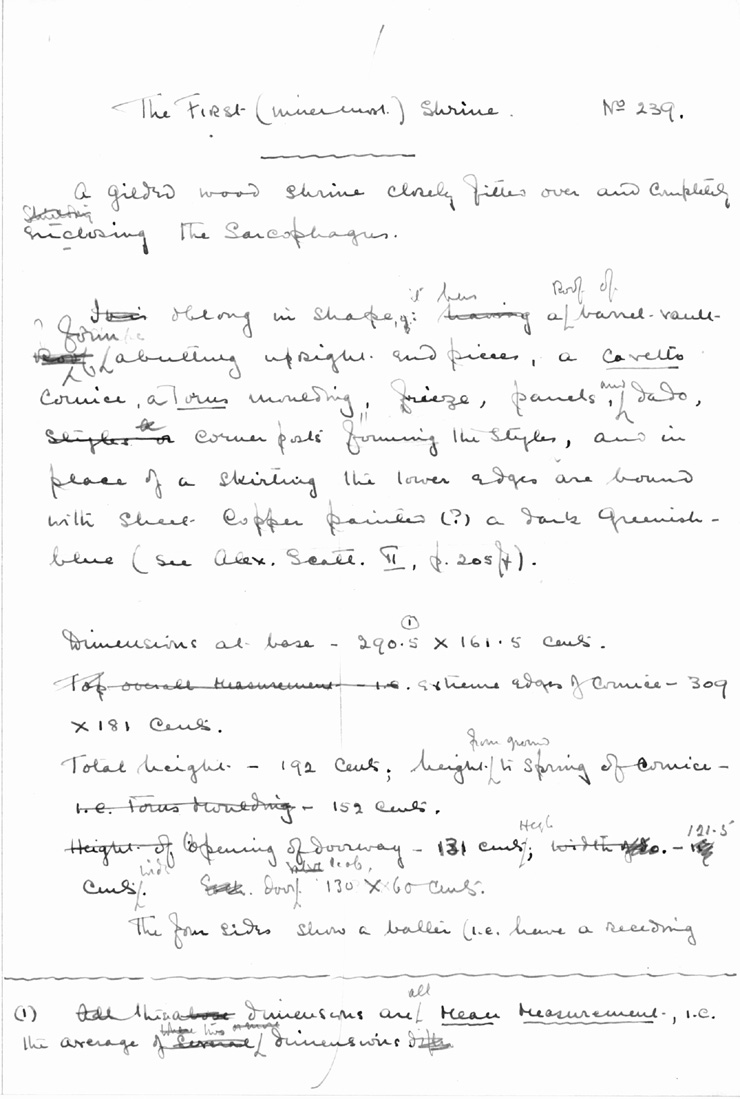 1
The First (innermost) Shrine. No 239.
A gilded wood shrine closely fitted over and completely
Shielding
enclosing the Sarcophagus.
it has Roof of
This oblong in shape, having a barrel-vault-
? form
Roof abutting upright end pieces, a Cavetto
and
Cornice, a Torus moulding, frieze, panels, dado,
Styles or corner posts forming the styles, and in
place of a skirting the lower edges are bound
with sheet copper painted (?) a dark Greenish-
blue (see Alex. Scott. II, p. 205 ).
(1)
Dimensions at base - 290.5 x 161.5 cents.
Top overall measurement - i.e. extreme edges of Cornice - 309
x 181 cents.
from ground
Total height - 192 cents; height to Spring of Cornice -
i.e. Torus Moulding - 152 cents.
High 121.5
Height of Opening of doorway - 131 cents; width do. -
wide
cents. Each door 130 x 60 cents.
The four sides show a batter (i.e. have a receding
all
(1) All dimensions are Mean Measurement, i.e.
where two or more
the average of several dimensions